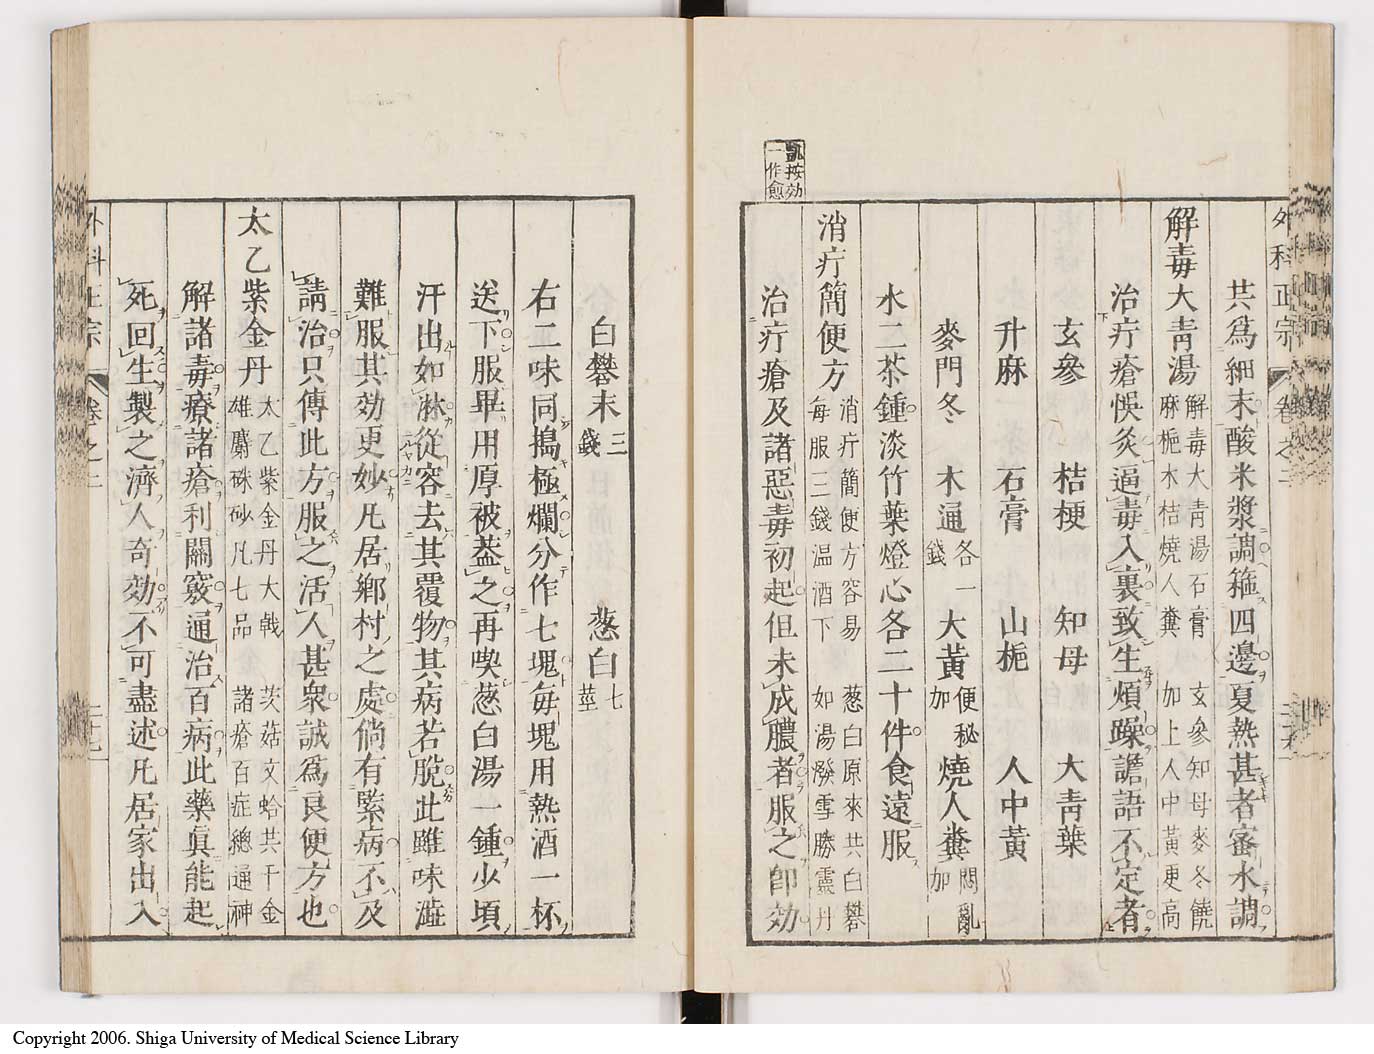 外科正宗 卷之二
共爲細末酸米漿調箍四邊夏熱甚者蜜水調
解毒大青湯 解毒大青湯石膏 玄參知母麥冬饒
麻梔木桔燒人糞 加上人中黃更高
治疔瘡悞灸逼毒入裏致生煩躁譫語不定者
玄參 桔梗 知母 大青葉
升麻 石膏 山梔 人中黃
麥門冬 木通各一錢 大黃便秘加 燒人糞悶亂加
水二茶鍾淡竹葉燈心各二十件食遠服
消疔簡便方 消疔簡便方容易 葱白原來共白礬
每服三錢温酒下 如湯潑雪勝靈丹
治疔瘡及諸惡毒初起但未成膿者服之即効
凱按効
一作愈
白礬末三錢 葱白七莖
右二味同搗極爛分作七塊每塊用熱酒一杯
送下服畢用厚被葢之再喫葱白湯一鍾少頃
汗出如淋從容去其覆物其病若脫此雖味澁
難服其効更妙凡居鄕村之處倘有緊病不及
請治只傳此方服之活人甚衆誠爲良便方也
太乙紫金丹 太乙紫金丹大戟 茨菇文蛤共千金
雄麝硃砂凡七品 諸瘡百症總通神
解諸毒療諸瘡利關竅通治百病此藥眞能起
死回生製之濟人奇効不可盡述凡居家出入
外科正宗 卷之二 二十七